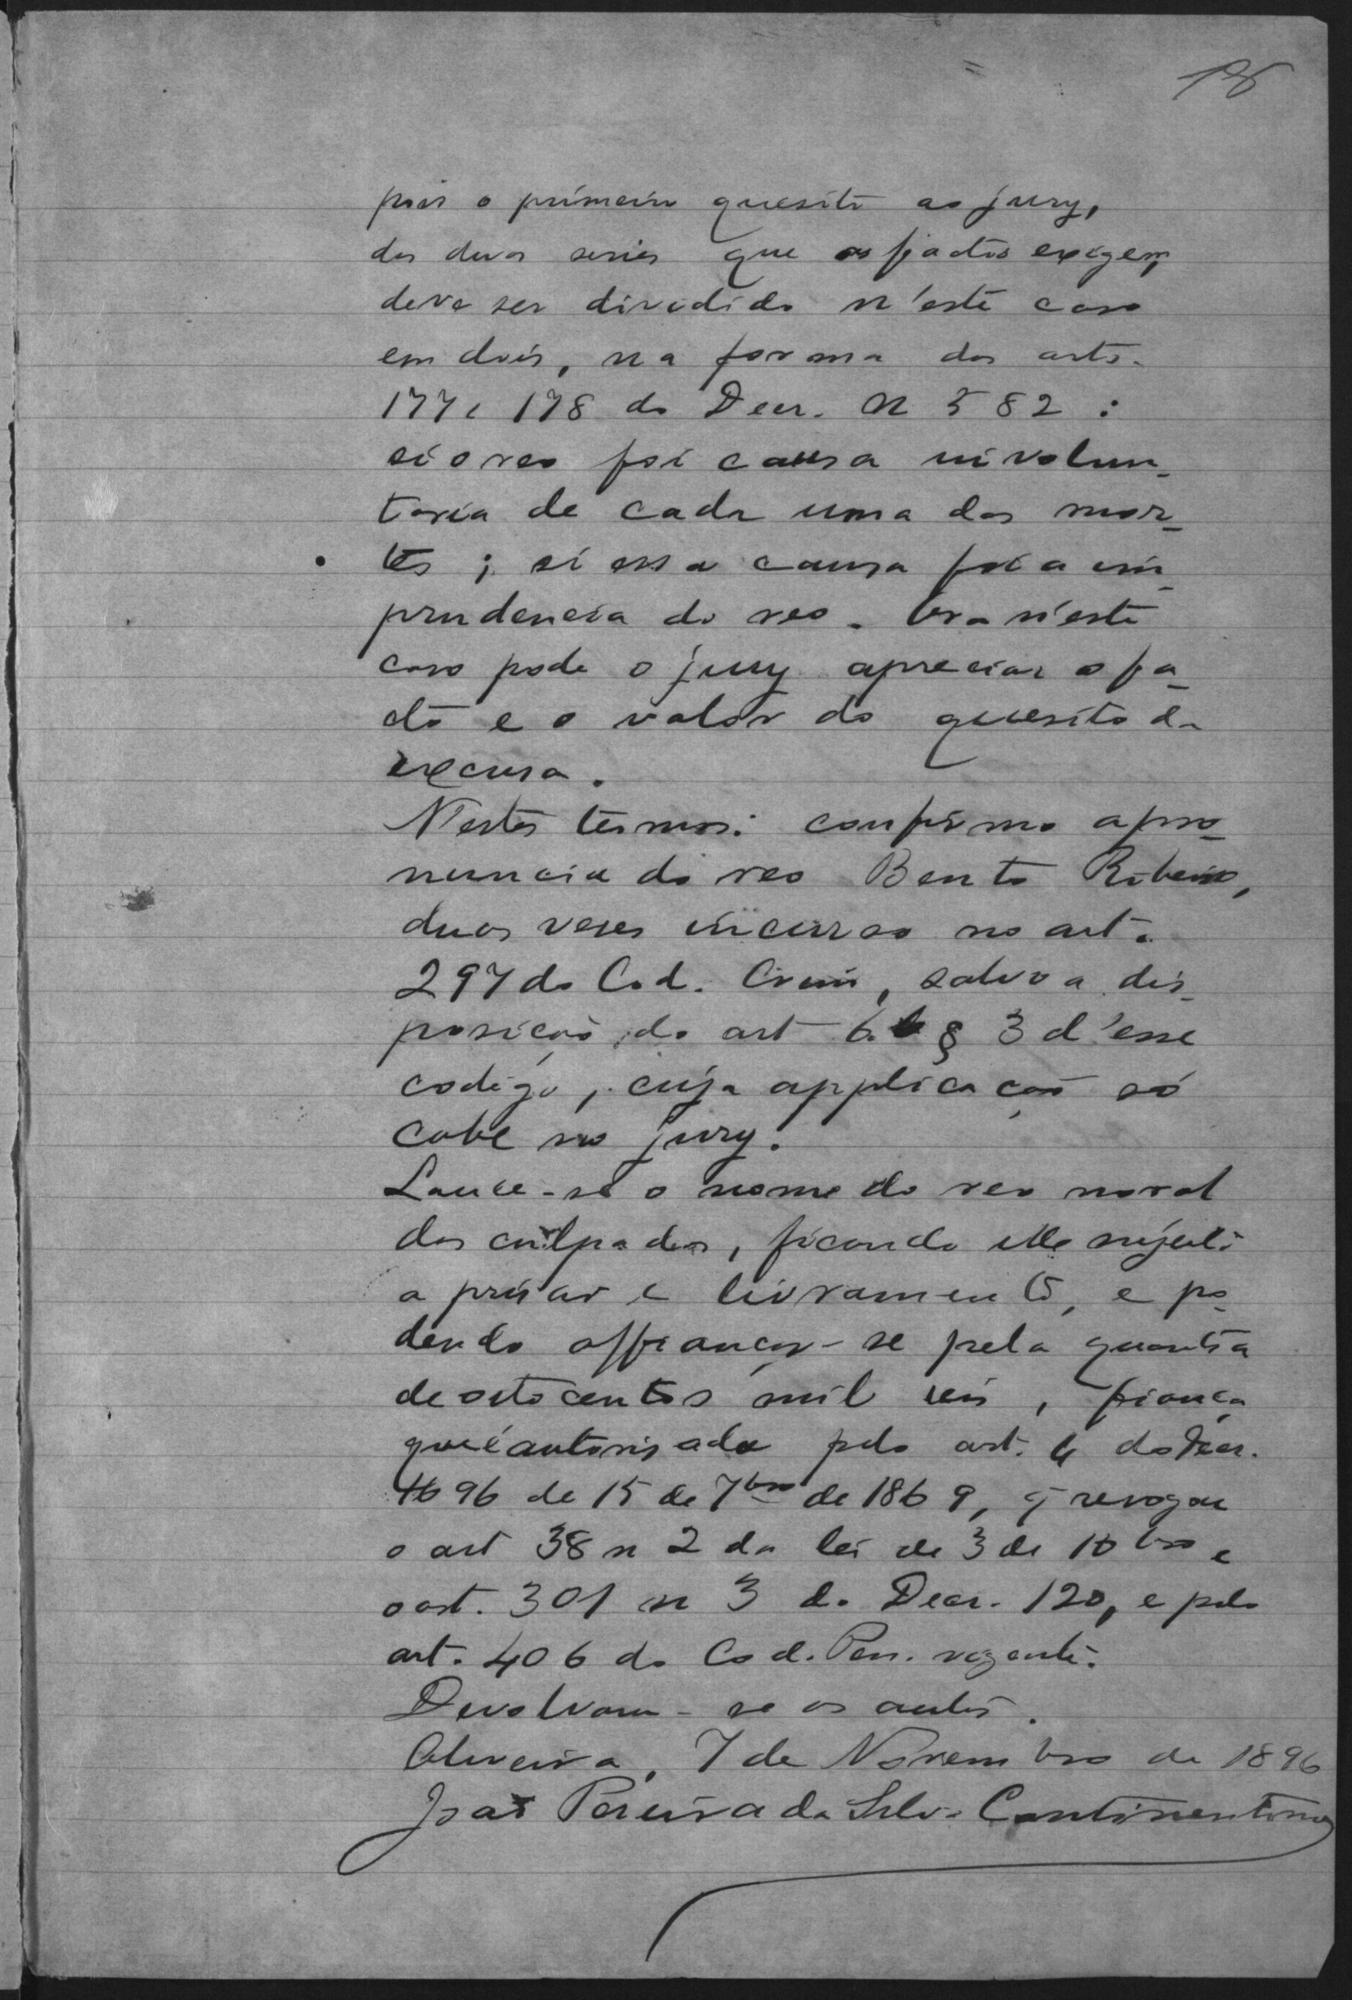 18
pois o primeiro quesito ao jury,
das duas series que os factos exigem,
deve ser dividido n'este caso
em dois, na forma dos arts.
177 e 178 do Decr. N 582 :
si o reo foi causa involun-
taria de cada uma das mor-
tes ; si essa causa foi a im-
prudencia do reo. Ora n'este
caso pode o jury apreciar o fa-
cto e o valor do quesito da
excusa.
N'estes termos: confirmo a pro-
nuncia do reo Bento Ribeiro,
duas veses incurso no art.
297 do Cod. Crim, salvo a dis-
posição do art 6 § 3 d'esse
codigo, cuja applicação só
cabe ao jury.
Lance-se o nome do reo no rol
dos culpados, ficando elle sujeito
a prisão e livramento, e po-
dendo affiançar-se pela quantia
de oitocentos mil reis, fiança
que é autorisada pelo art. 4 do Decr.
4696 de 15 de 7bro de 1869, q revogou
o art 38 n 2 da lei de 3 de 10bro e
o art. 301 n 3 do Decr. 120, e pelo
art. 406 do Cod. Pen. vigente.
Devolvam-se os autos.
Oliveira, 7 de Novembro de 1896
João Pereira da Silva Continentino